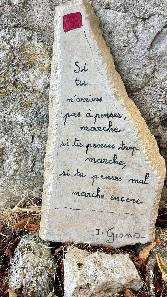 Si
tu
n'arrives
pas à penser,
marche
si tu penses trop
marche,
si tu penses mal
marche encore
J. Giono